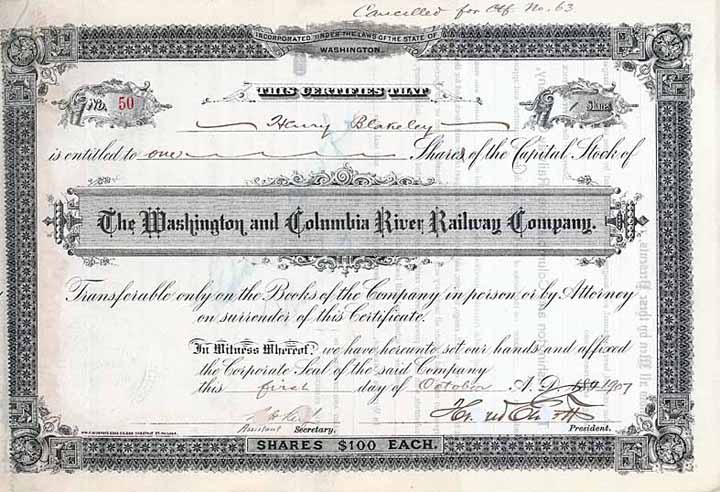 Cancelled for Ctf. No. 63
INCORPORATED UNDER THE LAWS OF THE STATE OF
WASHINGTON.
THIS CERTIFIES THAT
No. 50
1 Share
Henry Blakeley
is entitled to one Shares of the Capital Stock of
The Washington and Columbia River Railway Company.
Transferable only on the Books of the Company in person or by Attorney
on surrender of this Certificate.
In Witness Whereof, we have hereunto set our hands and affixed
the Corporate Seal of the said Company
this first day of October A.D. 1907
Assistant Secretary.
President.
SHARES $100 EACH.